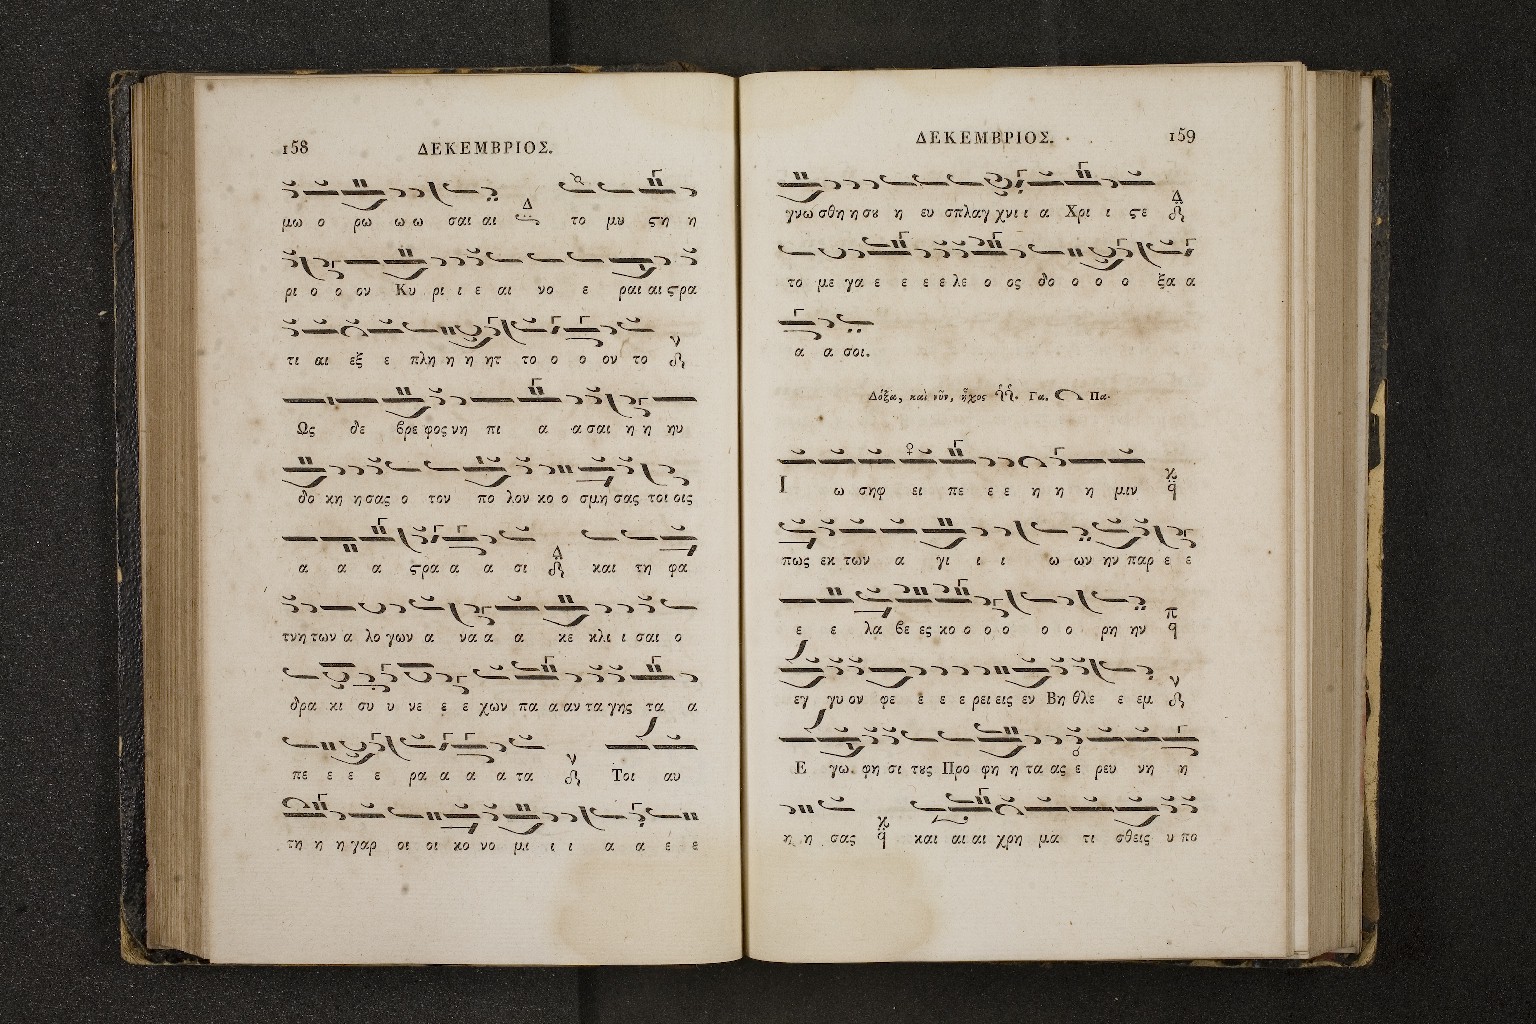 158
ΔΕΚΕΜΒΡΙΟΣ.
μω ο ρω ω ω σαι αι Δ το μυ ϛη η
ρι ο ο ον Κυ ρι ι ε αι νο ε ραι αι ϛρα
τι αι εξ ε πλη η η ητ το ο ο ον το
Ως δε βρε φος νη πι α α σαι η η ηυ
δο κη η σας ο τον πο λον κο ο σμη σας τοι οις
α α α ϛρα α α σι Δ και τη φα
τνη των α λο γων α να α α κε κλι ι σαι ο
δρα κι συ υ νε ε ε χων πα α αν τα γης τα α
πε ε ε ε ρα α α α τα Τοι αυ
τη η η γαρ οι οι κο νο μι ι ι α α ε ε
ΔΕΚΕΜΒΡΙΟΣ.
159
γνω σθη η σȣ η ευ σπλαγ χνι ι α Χρι ι ϛε Δ
το με γα ε ε ε ε λε ο ος δο ο ο ο ξα α
α α σοι.
Δόξα, καὶ νῦν, ἦχος Γα. Πα.
Ι ω σηφ ει πε ε ε η η η μιν
πως εκ των α γι ι ι ω ων ην παρ ε ε
ε ε λα βε ες κο ο ο ο ο ο ρη ην π
εγ γυ ον φε ε ε ε ρει εις εν Βη θλε ε εμ
Ε γω φη σι τȣς Προ φη η τα ας ε ρευ νη η
η η σας και αι αι χρη μα τι σθεις υ πο